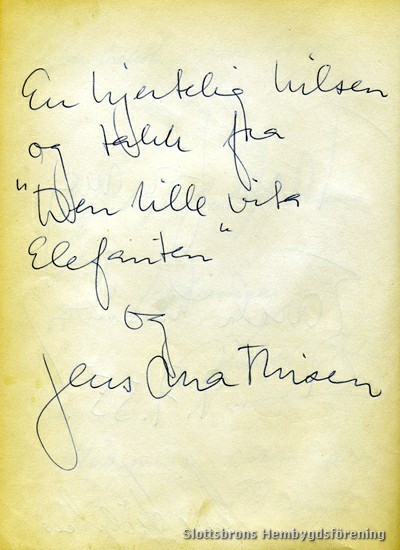 En hjertelig hilsen
og takk fra
"Den lille vita
Elefanten"
og
Jens
Slottsbrons Hembygdsförening